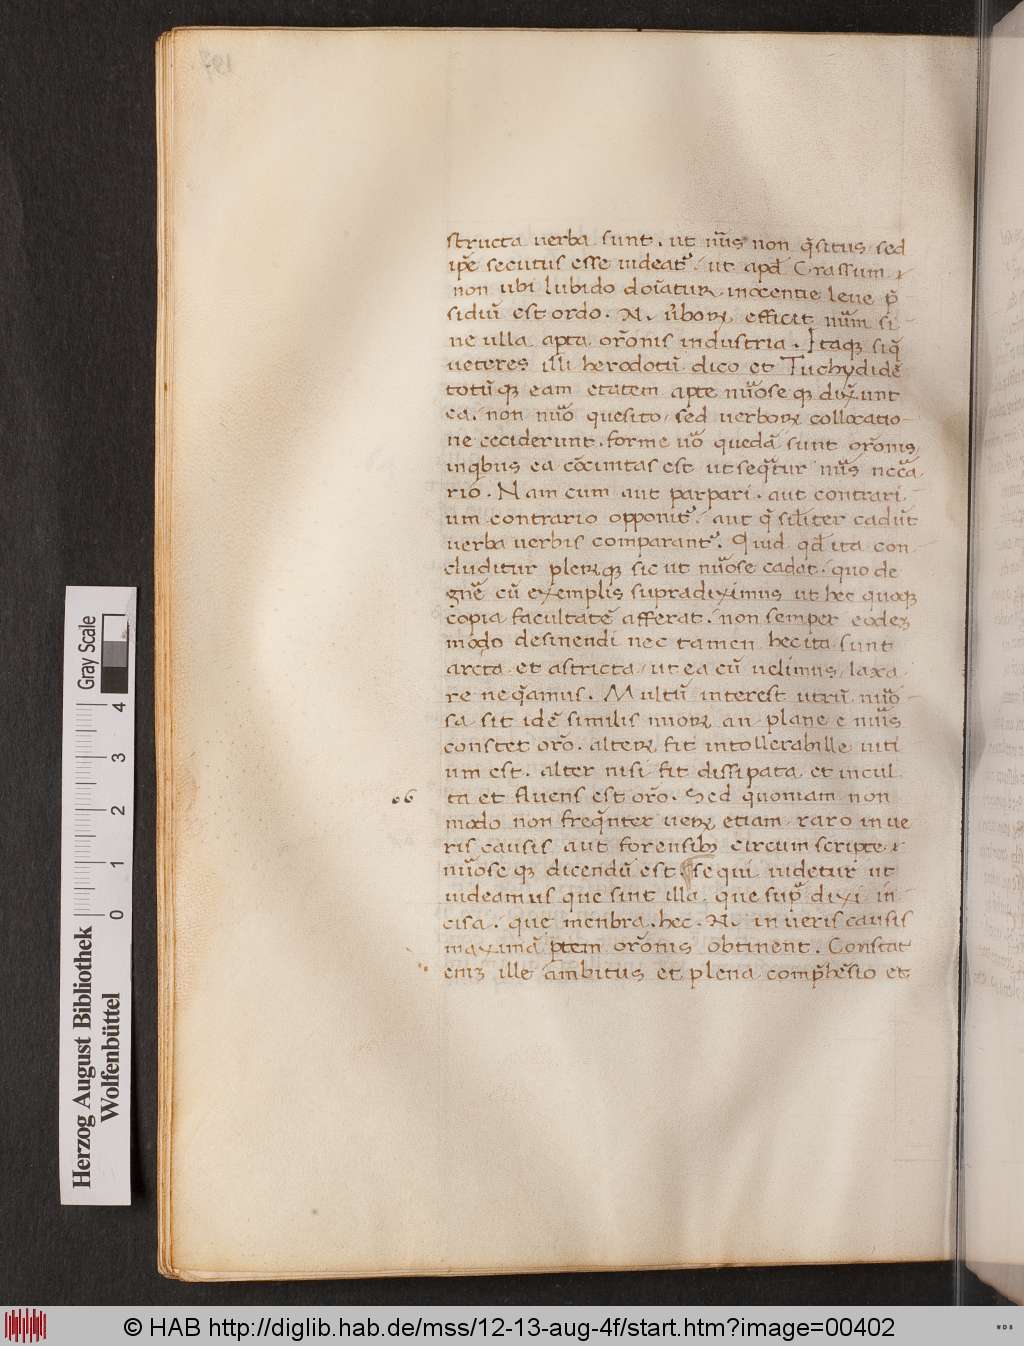 structa uerba sunt. ut nũs non q̃situs sed
ip̃e secutus esse uideat᷑. ut apd̃ Crassum ⁊
non ubi lubido doĩatur, inocentie leue p̃
sidiũ est ordo. N. ũboꝝ efficit nũm si
ne ulla apta or̃onis industria. Itaqꝫ siq̃
ueteres illi herodotũ dico et Tuchydidẽ
totũ qꝫ eam etatem apte nũose qꝫ dixunt
ea. non nũo quesito, sed uerboꝝ collocatio
ne ceciderunt. forme ũo quedã sunt or̃onis,
inqbus ea cõcinitas est ut seq̃tur nũs necã
rio. Nam cum aut par pari. aut contrari
um contrario opponit᷑. aut q̃ siliter cadũt
uerba uerbis comparant᷑. Quid qd̃ ita con
cluditur pleꝝqꝫ sic ut nũose cadat. quo de
gñe cũ exemplis supra diximus ut hec quoqꝫ
copia facultatẽ afferat. non semper eodeꝫ
modo desinendi nec tamen hec ita sunt
arcta et astricta, ut ea cũ uelimus, laxa
re neq̃amus. Multũ interest utrũ nũo
sa sit idẽ similis nuoꝝ an plane e nũis
constet or̃o. alteꝝ fit intollerabille uiti
um est. alter nisi fit dissipata et incul
06 ta et fluens est or̃o. Sed quoniam non
modo non freq̃nter ueꝝ etiam raro in ue
ris causis aut forensibꝫ circum scripte ⁊
nũose qꝫ dicendũ est sequi uidetur ut
uideamus que sint illa que sup̃ dixi in
cisa. que menbra. hec. N. in ueris causis
maximã ptem or̃onis obtinent. Constat
eniꝫ ille ambitus et plena comp̃hẽsio et
Herzog August Bibliothek
Wolfenbüttel
0 1 2 3 4
Gray Scale
© HAB http://diglib.hab.de/mss/12-13-aug-4f/start.htm?image=00402